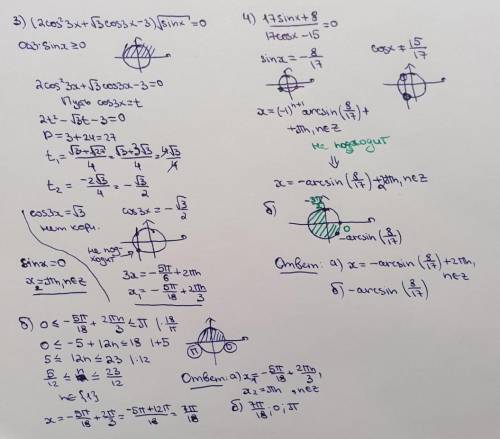 3) (2cos²3x+√3cos3x-3)√sinx=0
ОДЗ: sinx≥0
2cos²3x+√3cos3x-3=0
Пусть cos3x=t
2t²-√3t-3=0
D=3+24=27
t₁=(√3+√27)/4=(√3+3√3)/4=4√3/4
t₂=-2√3/4=-√3/2
cos3x=√3
нет корн.
cos3x=-√3/2
не под-
ходит
sinx=0
x₂=πn, n∈Z
3x=-5π/6+2πn
x₁=-5π/18+2πn/3
б) 0≤-5π/18+2πn/3≤π |·18/π
0≤-5+12n≤18 |+5
5≤12n≤23 |:12
5/12≤n≤23/12
n∈{1}
x=-5π/18+2π/3=(-5π+12π)/18=7π/18
π 0
Ответ: а) x₁=-5π/18+2πn/3,
x₂=πn, n∈Z
б) 7π/18; 0; π
4) (17sinx+8)/(17cosx-15)=0
sinx=-8/17
cosx≠15/17
x=(-1)ⁿ⁺¹arcsin(8/17)+
+πn, n∈Z
не подходит
x=-arcsin(8/17)+2πn, n∈Z
б)
0
-arcsin(8/17)
Ответ: а) x=-arcsin(8/17)+2πn,
n∈Z
б) -arcsin(8/17)